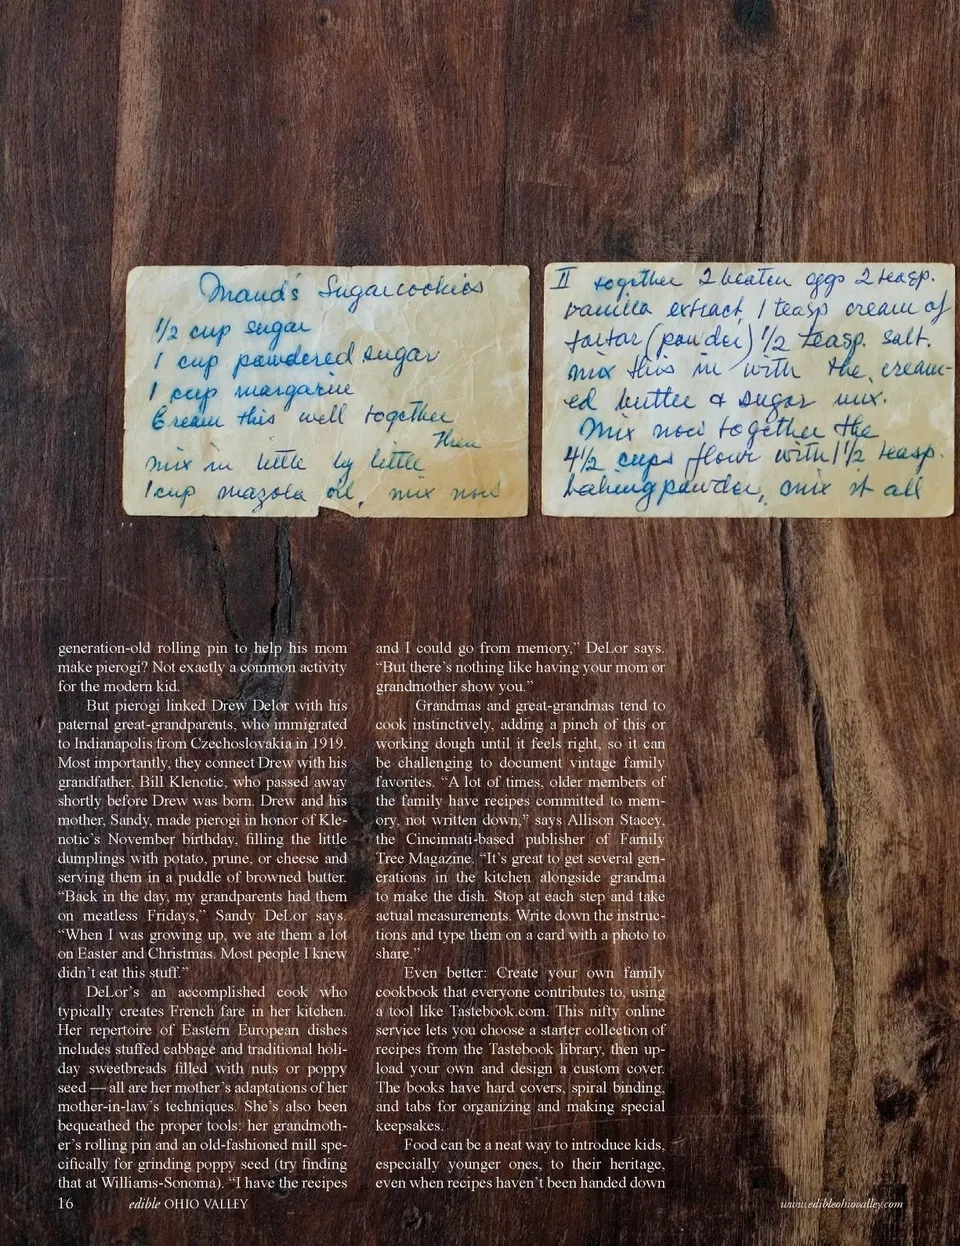 Maud's Sugarcookies
1/2 cup sugar
1 cup powdered sugar
1 cup margarine
Cream this well together
Then
mix in little by little
1 cup mazola oil, mix now
II together 2 beaten eggs 2 teasp.
vanilla extract, 1 teasp cream of
tartar (powder) 1/2 teasp. salt.
mix this in with the cream-
ed butter & sugar mix.
Mix now together the
4 1/2 cups flour with 1 1/2 teasp.
baking powder, mix it all
generation-old rolling pin to help his mom
make pierogi? Not exactly a common activity
for the modern kid.
But pierogi linked Drew Delor with his
paternal great-grandparents, who immigrated
to Indianapolis from Czechoslovakia in 1919.
Most importantly, they connect Drew with his
grandfather, Bill Klenotic, who passed away
shortly before Drew was born. Drew and his
mother, Sandy, made pierogi in honor of Kle-
notic's November birthday, filling the little
dumplings with potato, prune, or cheese and
serving them in a puddle of browned butter.
“Back in the day, my grandparents had them
on meatless Fridays,” Sandy DeLor says.
“When I was growing up, we ate them a lot
on Easter and Christmas. Most people I knew
didn't eat this stuff.”
DeLor's an accomplished cook who
typically creates French fare in her kitchen.
Her repertoire of Eastern European dishes
includes stuffed cabbage and traditional holi-
day sweetbreads filled with nuts or poppy
seed — all are her mother's adaptations of her
mother-in-law's techniques. She's also been
bequeathed the proper tools: her grandmoth-
er's rolling pin and an old-fashioned mill spe-
cifically for grinding poppy seed (try finding
that at Williams-Sonoma). “I have the recipes
and I could go from memory,” DeLor says.
“But there's nothing like having your mom or
grandmother show you.”
Grandmas and great-grandmas tend to
cook instinctively, adding a pinch of this or
working dough until it feels right, so it can
be challenging to document vintage family
favorites. “A lot of times, older members of
the family have recipes committed to mem-
ory, not written down,” says Allison Stacey,
the Cincinnati-based publisher of Family
Tree Magazine. “It's great to get several gen-
erations in the kitchen alongside grandma
to make the dish. Stop at each step and take
actual measurements. Write down the instruc-
tions and type them on a card with a photo to
share.”
Even better: Create your own family
cookbook that everyone contributes to, using
a tool like Tastebook.com. This nifty online
service lets you choose a starter collection of
recipes from the Tastebook library, then up-
load your own and design a custom cover.
The books have hard covers, spiral binding,
and tabs for organizing and making special
keepsakes.
Food can be a neat way to introduce kids,
especially younger ones, to their heritage,
even when recipes haven't been handed down
16 edible OHIO VALLEY
www.edibleohiovalley.com